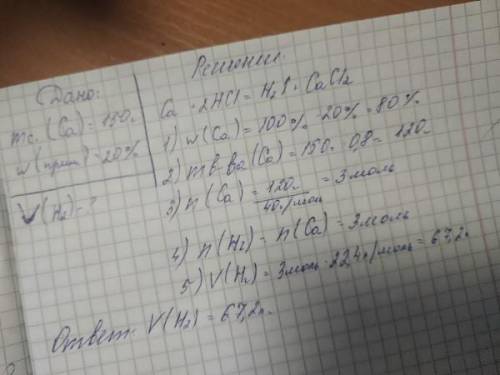 Дано:
mс. (Ca) = 150г
w (прим) = 20%
V(H₂) - ?
Решение:
Ca + 2HCl = H₂↑ + CaCl₂
1) w(Ca) = 100% - 20% = 80%
2) m в-ва (Ca) = 150г · 0,8 = 120г
3) n(Ca) = 120г / 40г/моль = 3 моль
4) n(H₂) = n(Ca) = 3 моль
5) V(H₂) = 3 моль · 22,4 л/моль = 67,2 л
Ответ: V(H₂) = 67,2 л.